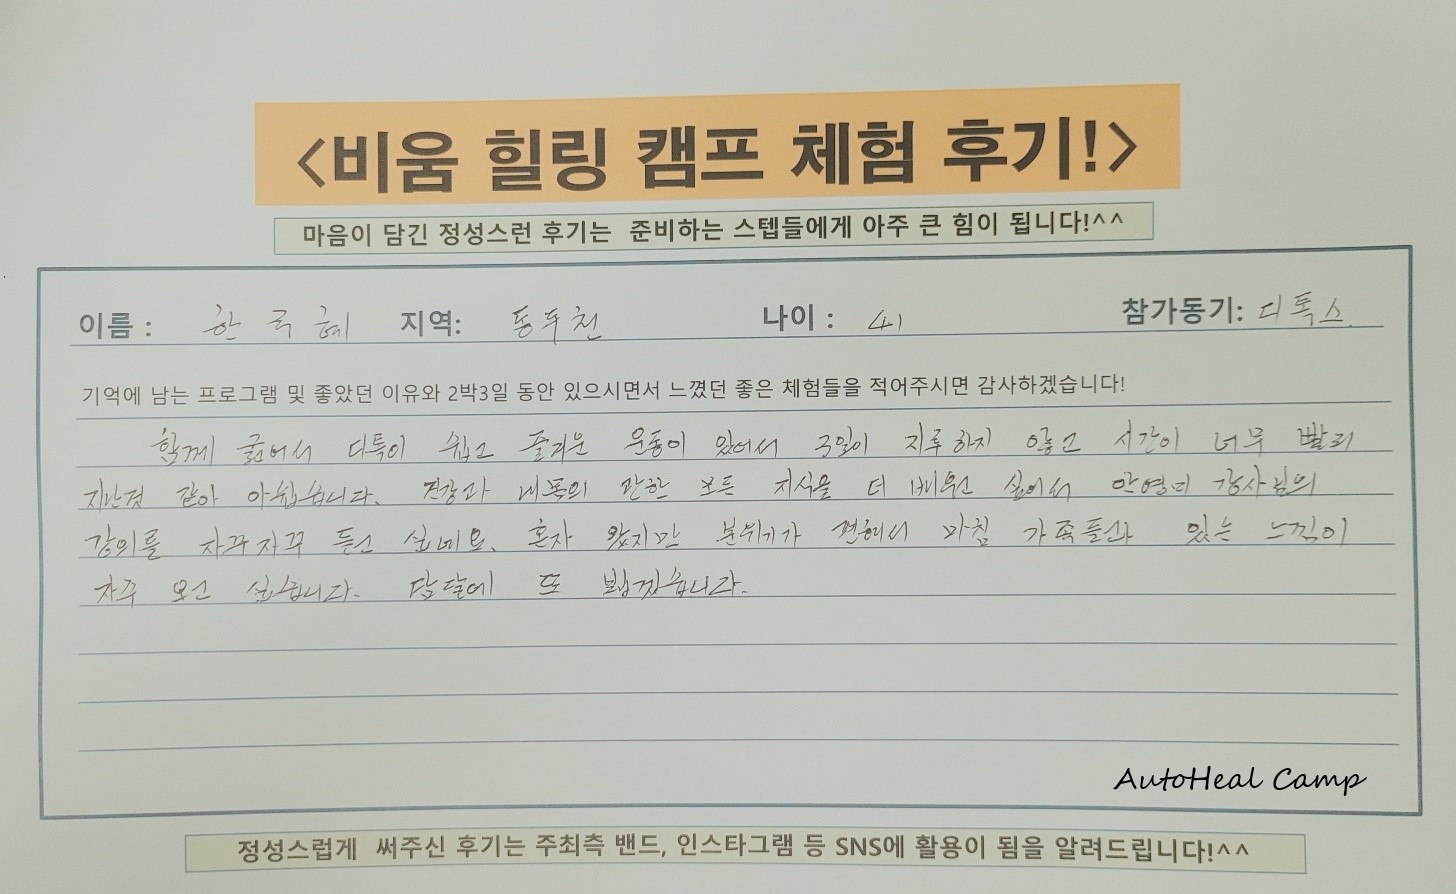 <비움 힐링 캠프 체험 후기!>
마음이 담긴 정성스런 후기는 준비하는 스텝들에게 아주 큰 힘이 됩니다!^^
이름 : 한 국 혜 지역: 동두천 나이 : 41 참가동기: 디톡스.
기억에 남는 프로그램 및 좋았던 이유와 2박3일 동안 있으시면서 느꼈던 좋은 체험들을 적어주시면 감사하겠습니다!
함께 굶어서 디톡이 쉽고 즐거운 운동이 있어서 3일이 지루하지 않고 시간이 너무 빨리
지난것 같아 아쉽습니다. 건강과 내몸의 관한 모든 지식을 더 배우고 싶어서 안영미 강사님의
강의를 자꾸자꾸 듣고 싶네요. 혼자 왔지만 분위기가 편해서 마침 가족들과 있는 느낌이
자주 오고 싶습니다. 담달에 또 뵙겠습니다.
AutoHeal Camp
정성스럽게 써주신 후기는 주최측 밴드, 인스타그램 등 SNS에 활용이 됨을 알려드립니다!^^